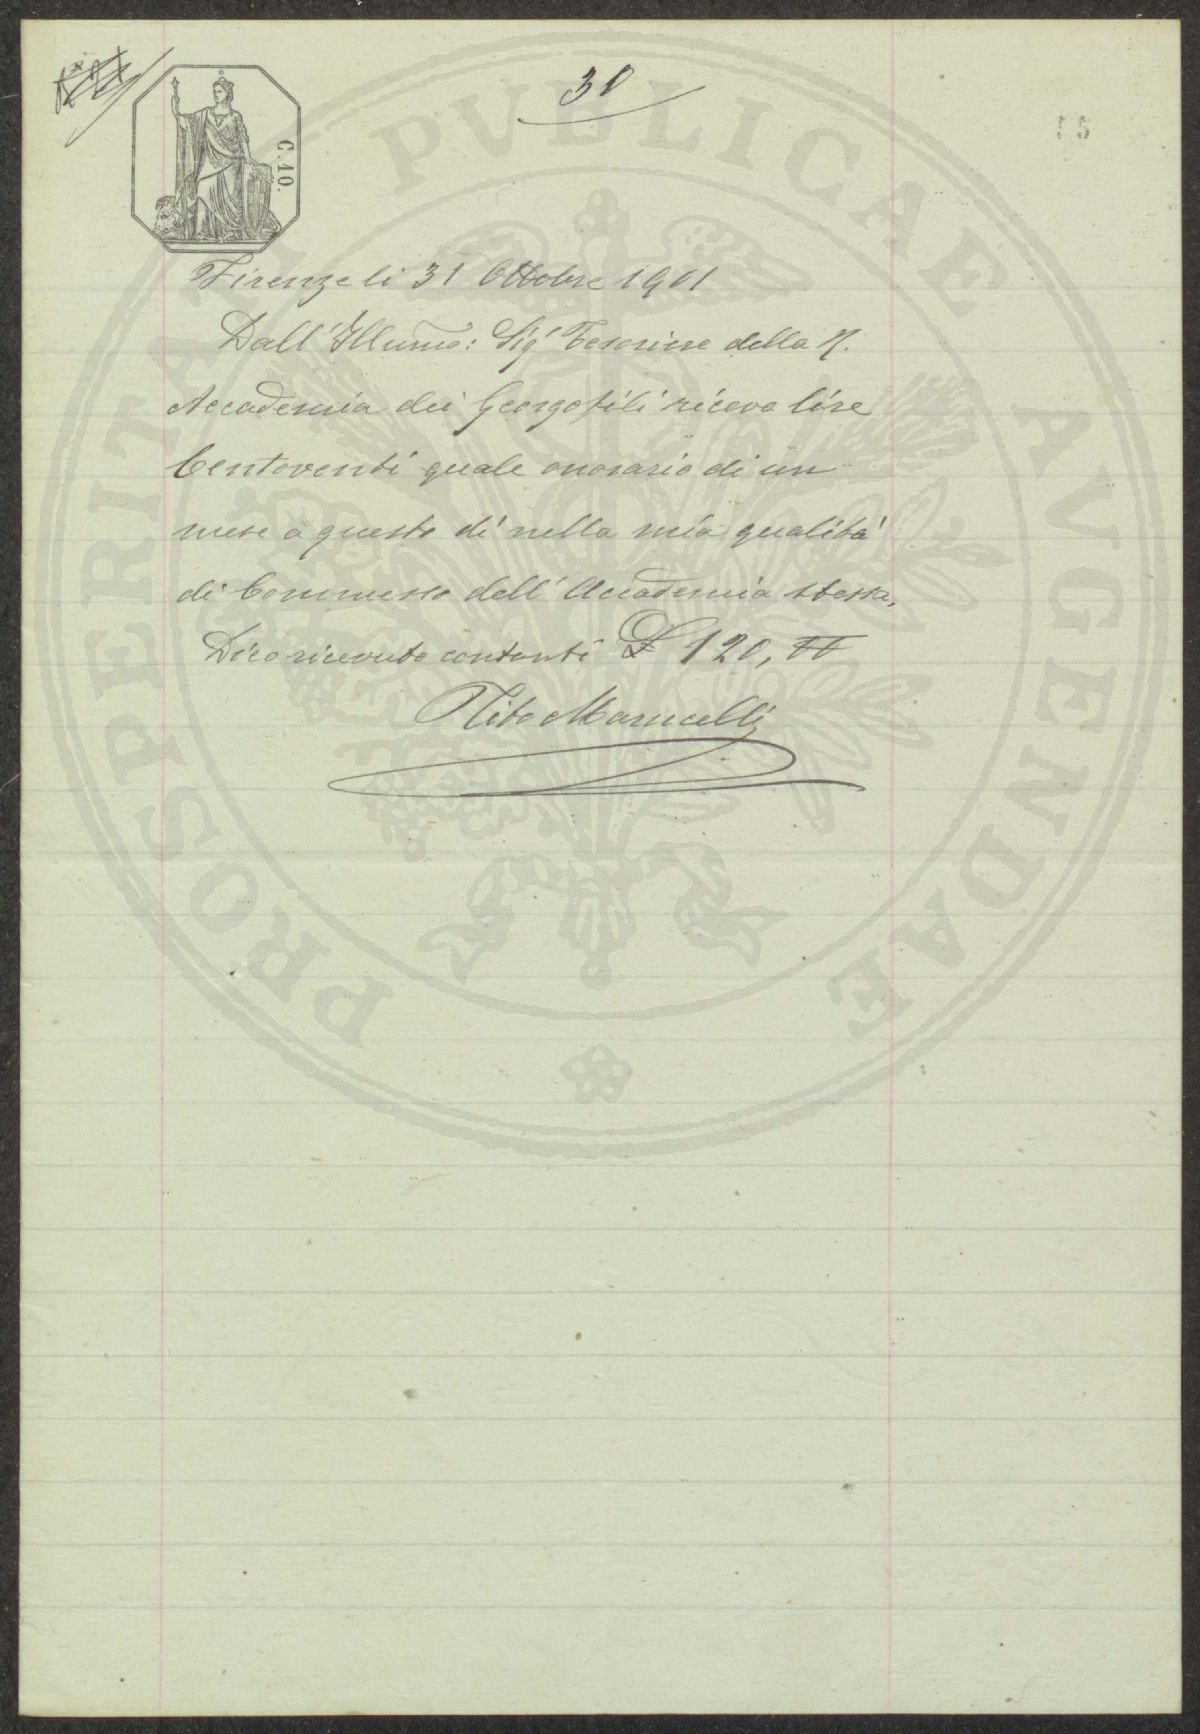 30
C. 10.
Firenze li 31 Ottobre 1901
Dall' Illumo: Sigr Tesoriere della R.
Accademia dei Georgofili ricevo lire
Centoventi quale onorario di un
mese a questo dì nella mia qualità
di Commesso dell' Accademia stessa.
Dico ricevuto contanti £ 120, "
Tito Marucelli
PROSPERITATI PVBLICAE AVGENDAE